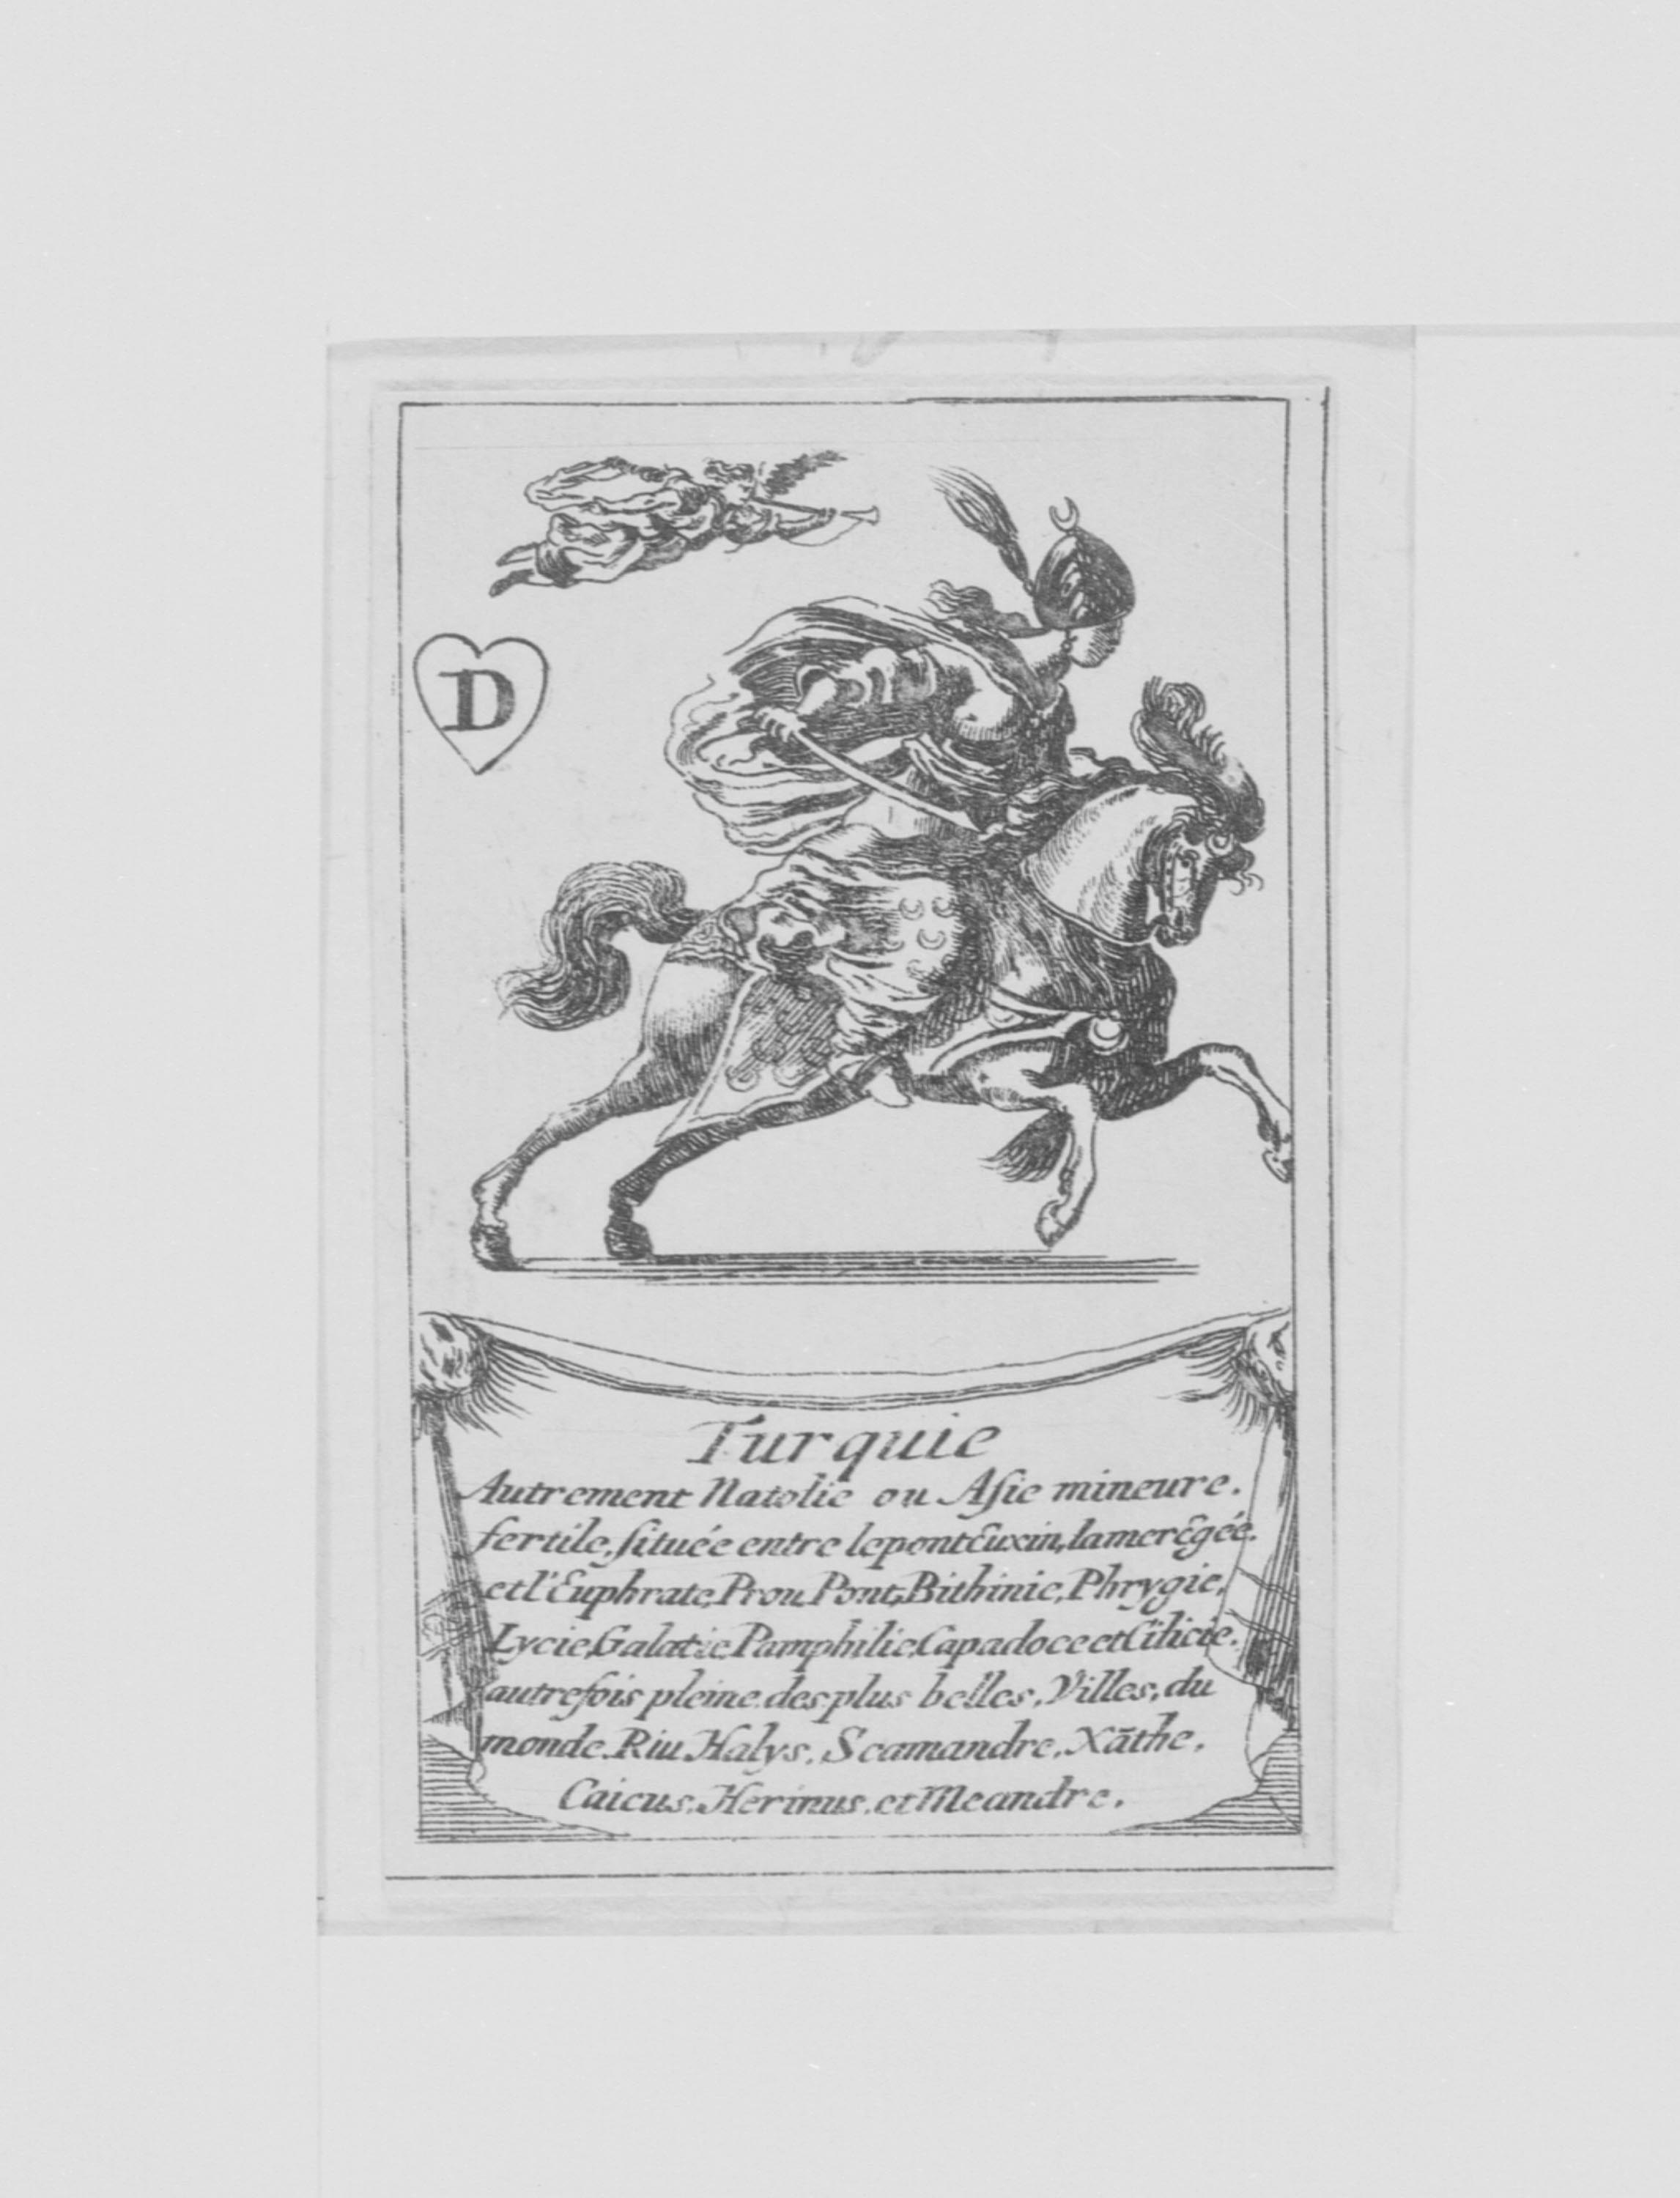 D
Turquie
Autrement Natolie ou Asie mineure.
fertile, située entre lepont Euxin, lamer Égée.
et l'Euphrate, Prou. Pont, Bithinie, Phrygie,
Lycie, Galatie, Pamphilie, Capadoce et Cilicie.
autrefois pleine des plus belles, Villes, du
monde. Riu Halys, Scamandre, Xāthe,
Caicus, Herinus, et Meandre.